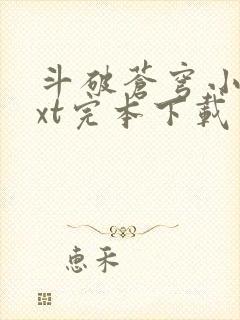 斗破苍穹.小
xt完本下载
惠禾